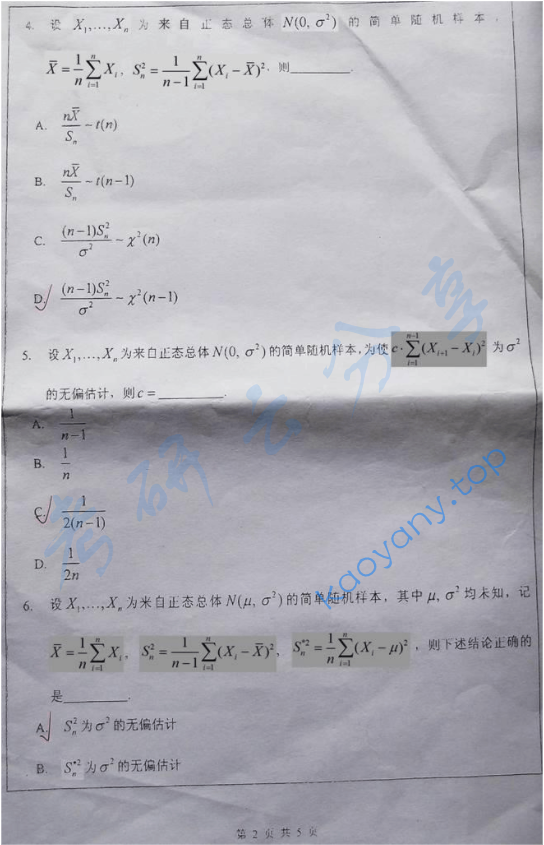 4. 设 X₁,…,Xₙ 为来自正态总体 N(0, σ²) 的简单随机样本,
X̄ = 1/n ∑ᵢ₌₁ⁿ Xᵢ, Sₙ² = 1/(n−1) ∑ᵢ₌₁ⁿ (Xᵢ − X̄)². 则________.
A. nX̄/Sₙ ~ t(n)
B. nX̄/Sₙ ~ t(n−1)
C. (n−1)Sₙ²/σ² ~ χ²(n)
D. (n−1)Sₙ²/σ² ~ χ²(n−1)
5. 设 X₁,…,Xₙ 为来自正态总体 N(0, σ²) 的简单随机样本, 为使 c·∑ᵢ₌₁ⁿ⁻¹ (Xᵢ₊₁ − Xᵢ)² 为 σ²
的无偏估计, 则 c = ________.
A. 1/(n−1)
B. 1/n
C. 1/(2(n−1))
D. 1/(2n)
6. 设 X₁,…,Xₙ 为来自正态总体 N(μ, σ²) 的简单随机样本, 其中 μ, σ² 均未知, 记
X̄ = 1/n ∑ᵢ₌₁ⁿ Xᵢ, Sₙ² = 1/(n−1) ∑ᵢ₌₁ⁿ (Xᵢ − X̄)², Sₙ*² = 1/n ∑ᵢ₌₁ⁿ (Xᵢ − μ)², 则下述结论正确的
是________.
A. Sₙ² 为 σ² 的无偏估计
B. Sₙ*² 为 σ² 的无偏估计
第 2 页 共 5 页
kaoyany.top